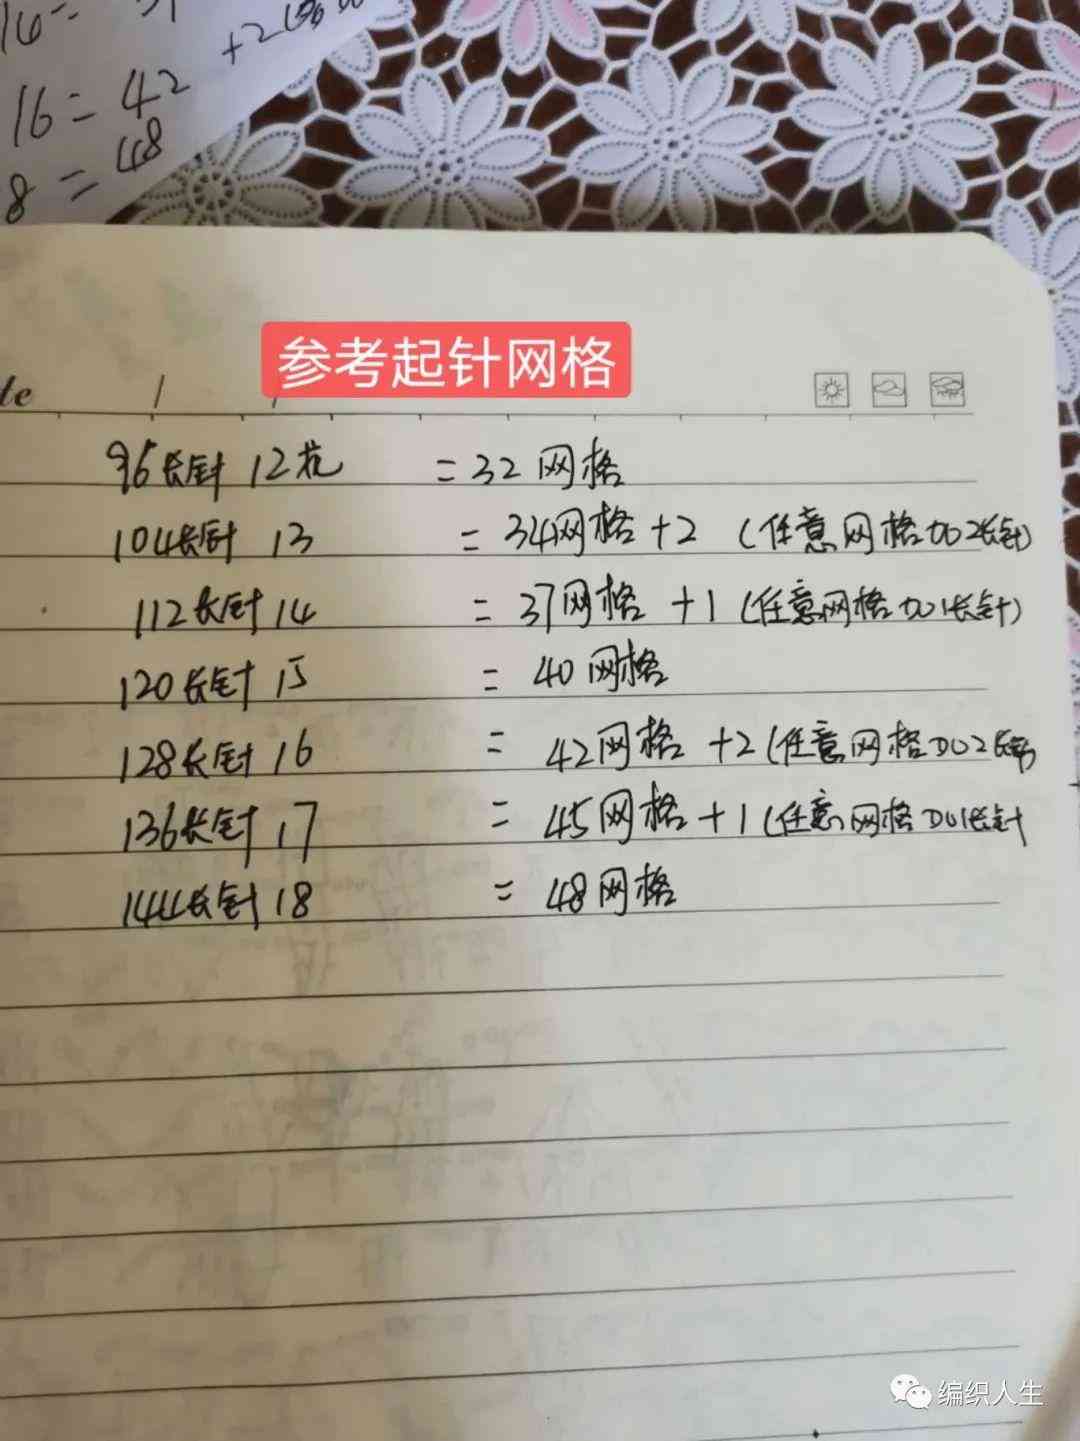 16 = 42
8 = 48
参考起针网格
96长针 12花 = 32网格
104长针 13 = 34网格+2 (任意网格加2长针)
112长针 14 = 37网格+1 (任意网格加1长针)
120长针 15 = 40网格
128长针 16 = 42网格+2 (任意网格加2长针)
136长针 17 = 45网格+1 (任意网格加1长针
144长针 18 = 48网格
编织人生